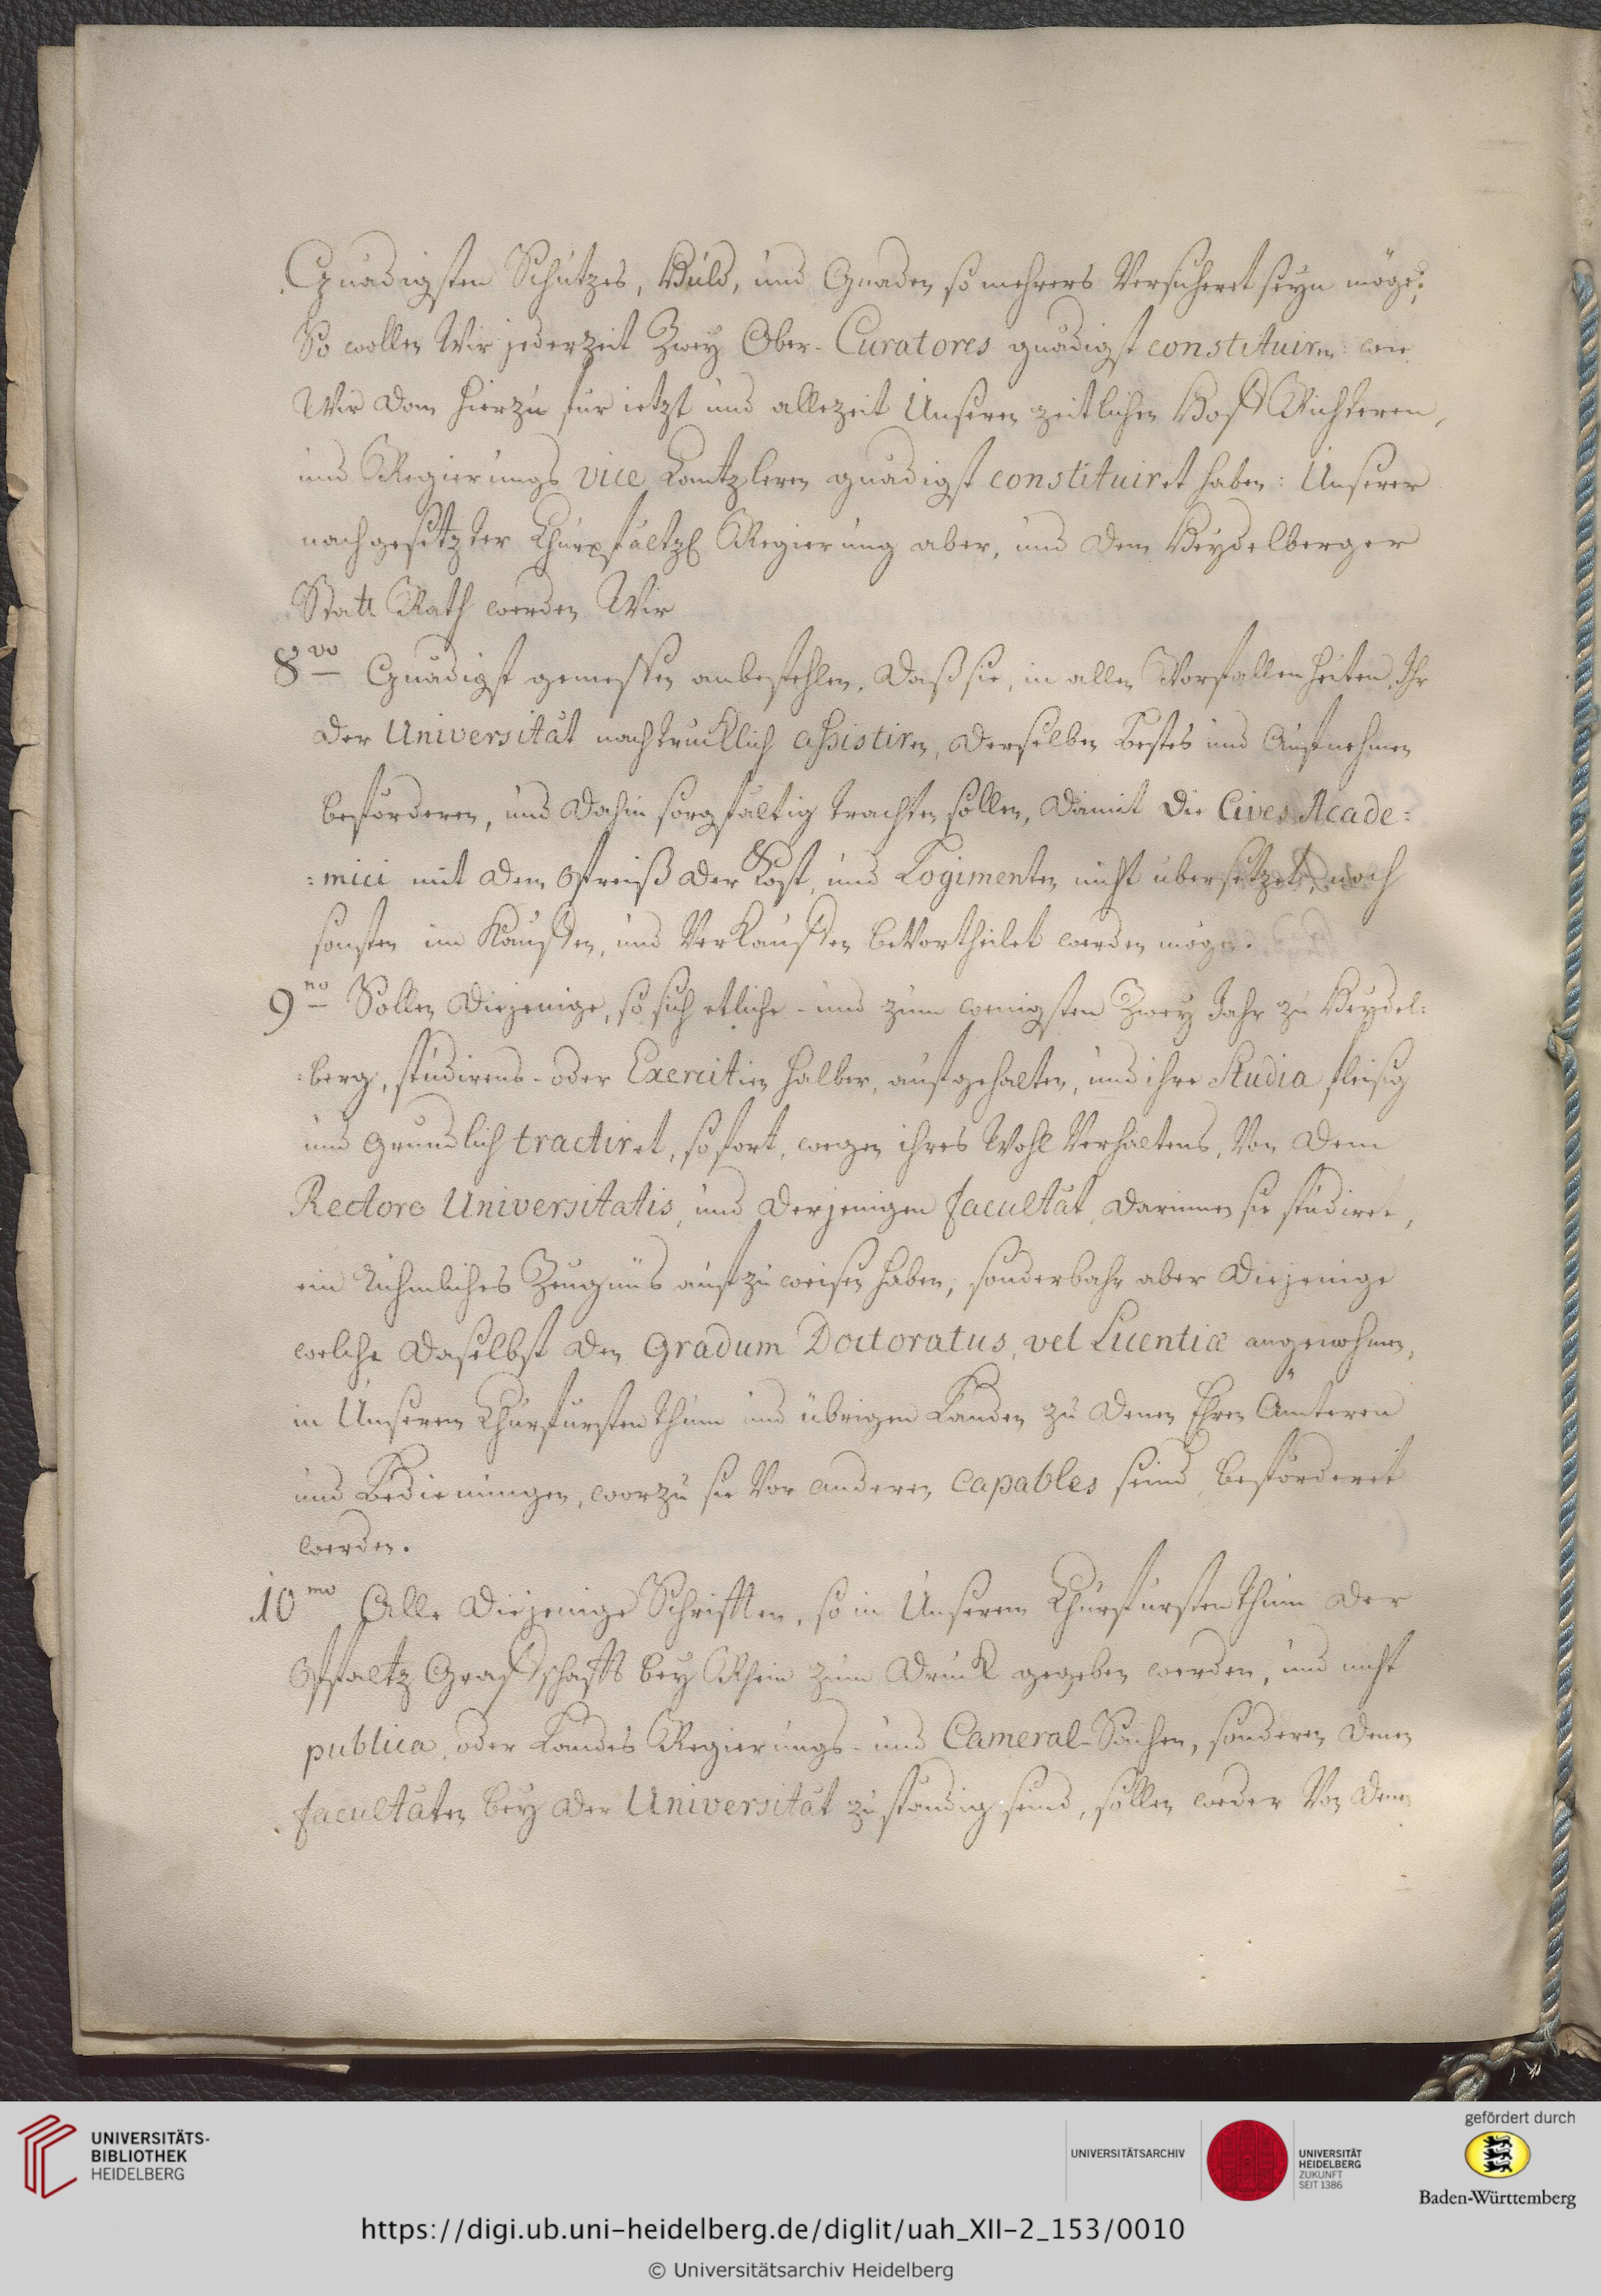 Gnädigsten Schutzes, Huld, und Gnaden so mehrers Versicheret seyn möge;
So wollen Wir jederzeit Zwey Ober-Curatores gnädigst constituiren: wie
Wir dan hierzu für ietzt und allezeit Unseren zeitlichen Hoff Richteren,
und Regierungs vice Cantzleren gnädigst constituiret haben: Unserer
nachgesetzter Churpfältzl Regierung aber, und dem Heydelberger
Statt Rath werden Wir
8vo Gnädigst gemessen anbefehlen, daß sie, in allen Vorfallenheiten, Ihr
der Universität nachtrucklich assistiren, derselben bestes und Aufnehmen
beförderen, und dahin sorgfältig trachten sollen, damit die Cives Acade:
:mici mit dem Preiß der Kost, und Logimenten nicht übersetzet, noch
sonsten im Kauffen, und Verkauffen beVortheilet werden mögen.
9no Sollen diejenige, so sich etliche- und zum wenigsten Zwey Jahr zu Heydel:
:berg, studirens- oder Exercitien halber, aufgehalten, und ihre Studia fleisig
und gründlich tractiret, sofort, wegen ihres Wohl Verhaltens, Von dem
Rectore Universitatis, und derjenigen facultät, darinnen sie studiret,
ein Rühmliches Zeugnüs aufzuweisen haben; sonderbahr aber diejenige
welche daselbst den Gradum Doctoratus, vel Licentiæ angenohmen,
in Unserem Churfürstenthum und übrigen Landen zu denen Ehren Ämteren
und Bedienungen, worzu sie Vor anderen capables seind, beförderet
werden.
10mo Alle diejenige Schrifften, so in Unserem Churfürstenthum der
Pfaltz Graffschafft bey Rhein zum Druck gegeben werden, und nicht
publica, oder Landes Regierungs- und Cameral-Sachen, sonderen denen
facultäten bey der Universität zuständig seind, sollen weder Von denen
UNIVERSITÄTS-
BIBLIOTHEK
HEIDELBERG
UNIVERSITÄTSARCHIV
UNIVERSITÄT
HEIDELBERG
ZUKUNFT
SEIT 1386
gefördert durch
Baden-Württemberg
https://digi.ub.uni-heidelberg.de/diglit/uah_XII-2_153/0010
© Universitätsarchiv Heidelberg